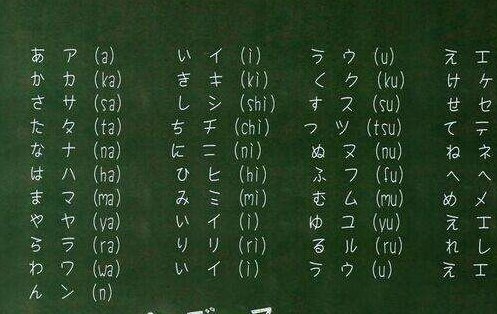 あ ア (a) い イ (i) う ウ (u) え エ
か カ (ka) き キ (ki) く ク (ku) け ケ
さ サ (sa) し シ (shi) す ス (su) せ セ
た タ (ta) ち チ (chi) つ ツ (tsu) て テ
な ナ (na) に ニ (ni) ぬ ヌ (nu) ね ネ
は ハ (ha) ひ ヒ (hi) ふ フ (fu) へ ヘ
ま マ (ma) み ミ (mi) む ム (mu) め メ
や ヤ (ya) い イ (i) ゆ ユ (yu) え エ
ら ラ (ra) り リ (ri) る ル (ru) れ レ
わ ワ (wa) い イ (i) う ウ (u) え エ
ん ン (n)